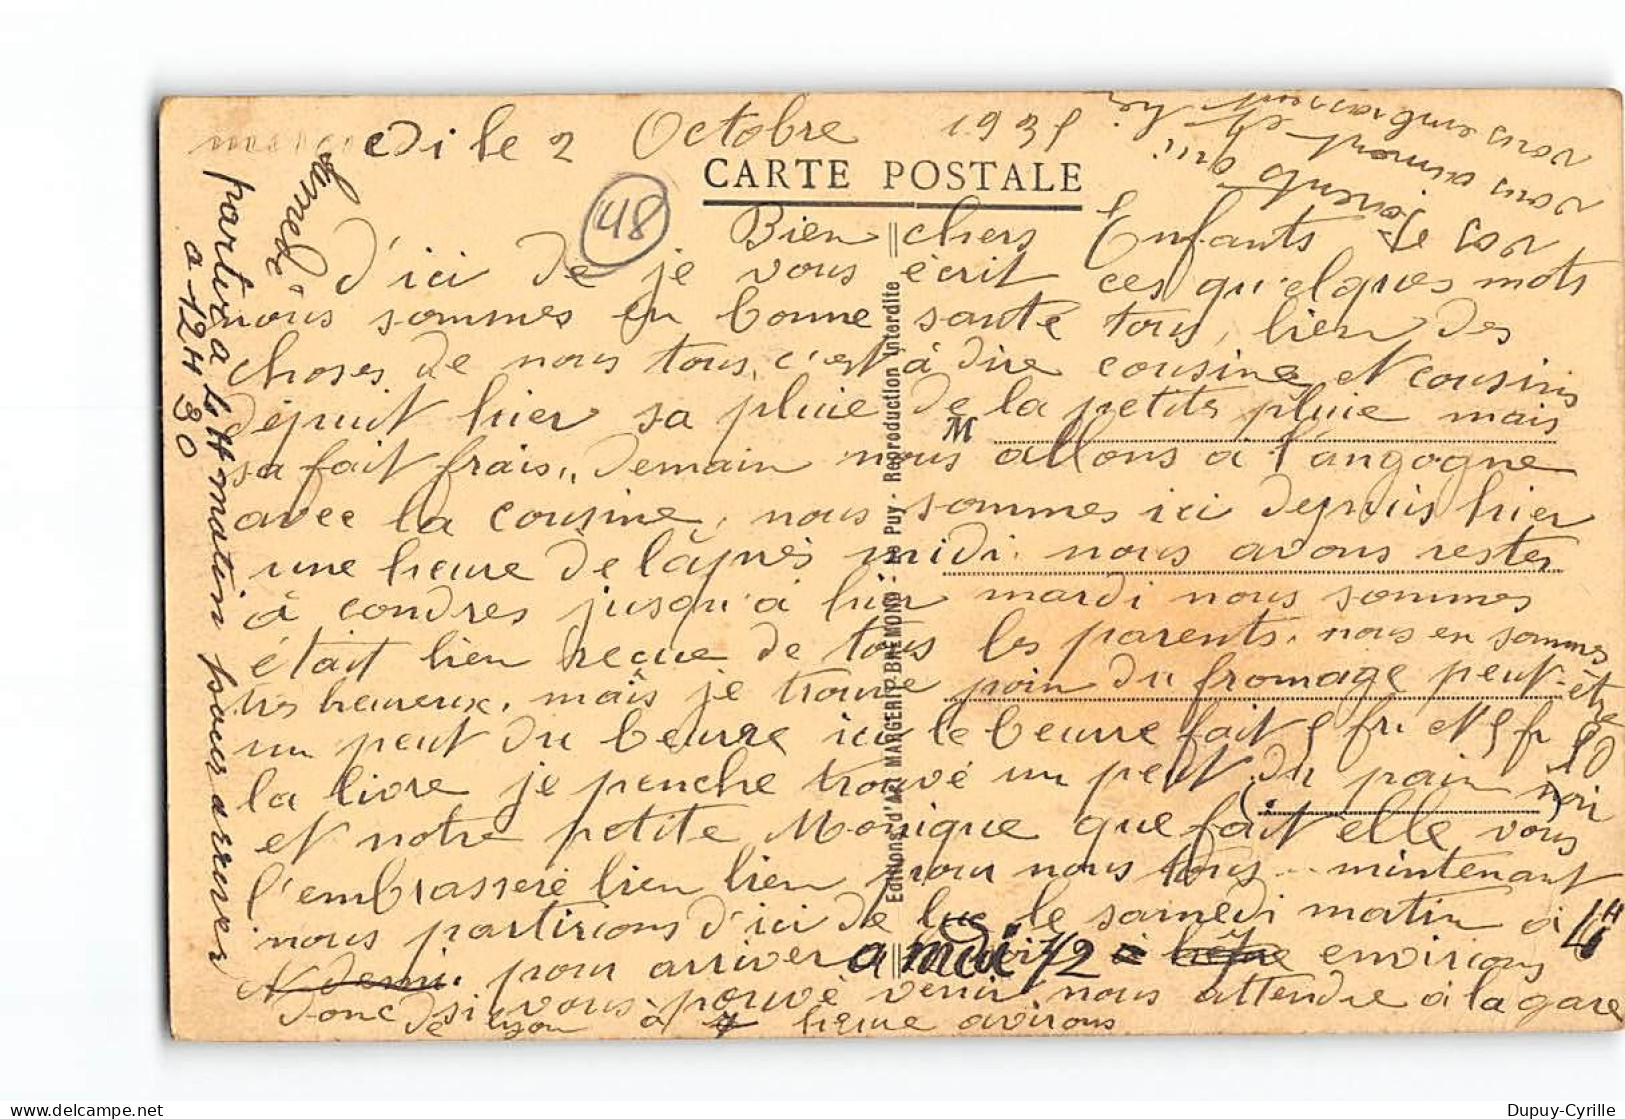 mercredi le 2 Octobre 1935
CARTE POSTALE
48
Bien chers Enfants
d'ici de je vous écrit ces quelques mots
nous sommes en bonne santé tous, bien des
choses de nous tous, c'est à dire cousine et cousins
dépuit hier sa pluie de la petite pluie mais
M
sa fait frais,, demain nous allons a l'angogne
avec la cousine, nous sommes ici depuis hier
une heure de l'après midi. nous avons rester
à condres jusqu'à hier mardi nous sommes
était bien reçue de tous les parents. nous en sommes
très heureux, mais je trouve poin du fromage peut-être
un peut du beurre ici le beurre fait 5 fr. et 5 fr 50
la livre je penche trouvé un peut du pain noir
et notre petite Monique que fait elle vous
l'embrasseré bien bien pour nous tous... mintenant
nous partirons d'ici de luc le samedi matin à 4H
et demi. pour arriver a midi 1/2 environs
donc si vous pouvé venir nous attendre à la gare
de Lyon à heure avirons
samedi
partira a 4H matin pour arriver
a 12H 30
vos parents qui
vous aiment et
vous embrassent
Editions d'Art MARGERIT-BREMOND - Le Puy - Reproduction interdite
Dupuy-Cyrille